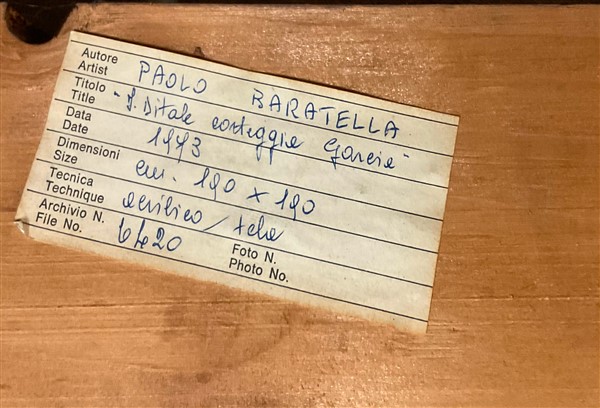 Autore
Artist PAOLO BARATELLA
Titolo
Title "J. Ditale corteggia Garcia"
Data
Date 1973
Dimensioni
Size cm. 190 x 190
Tecnica
Technique acrilico / tela
Archivio N.
File No. 6420
Foto N.
Photo No.